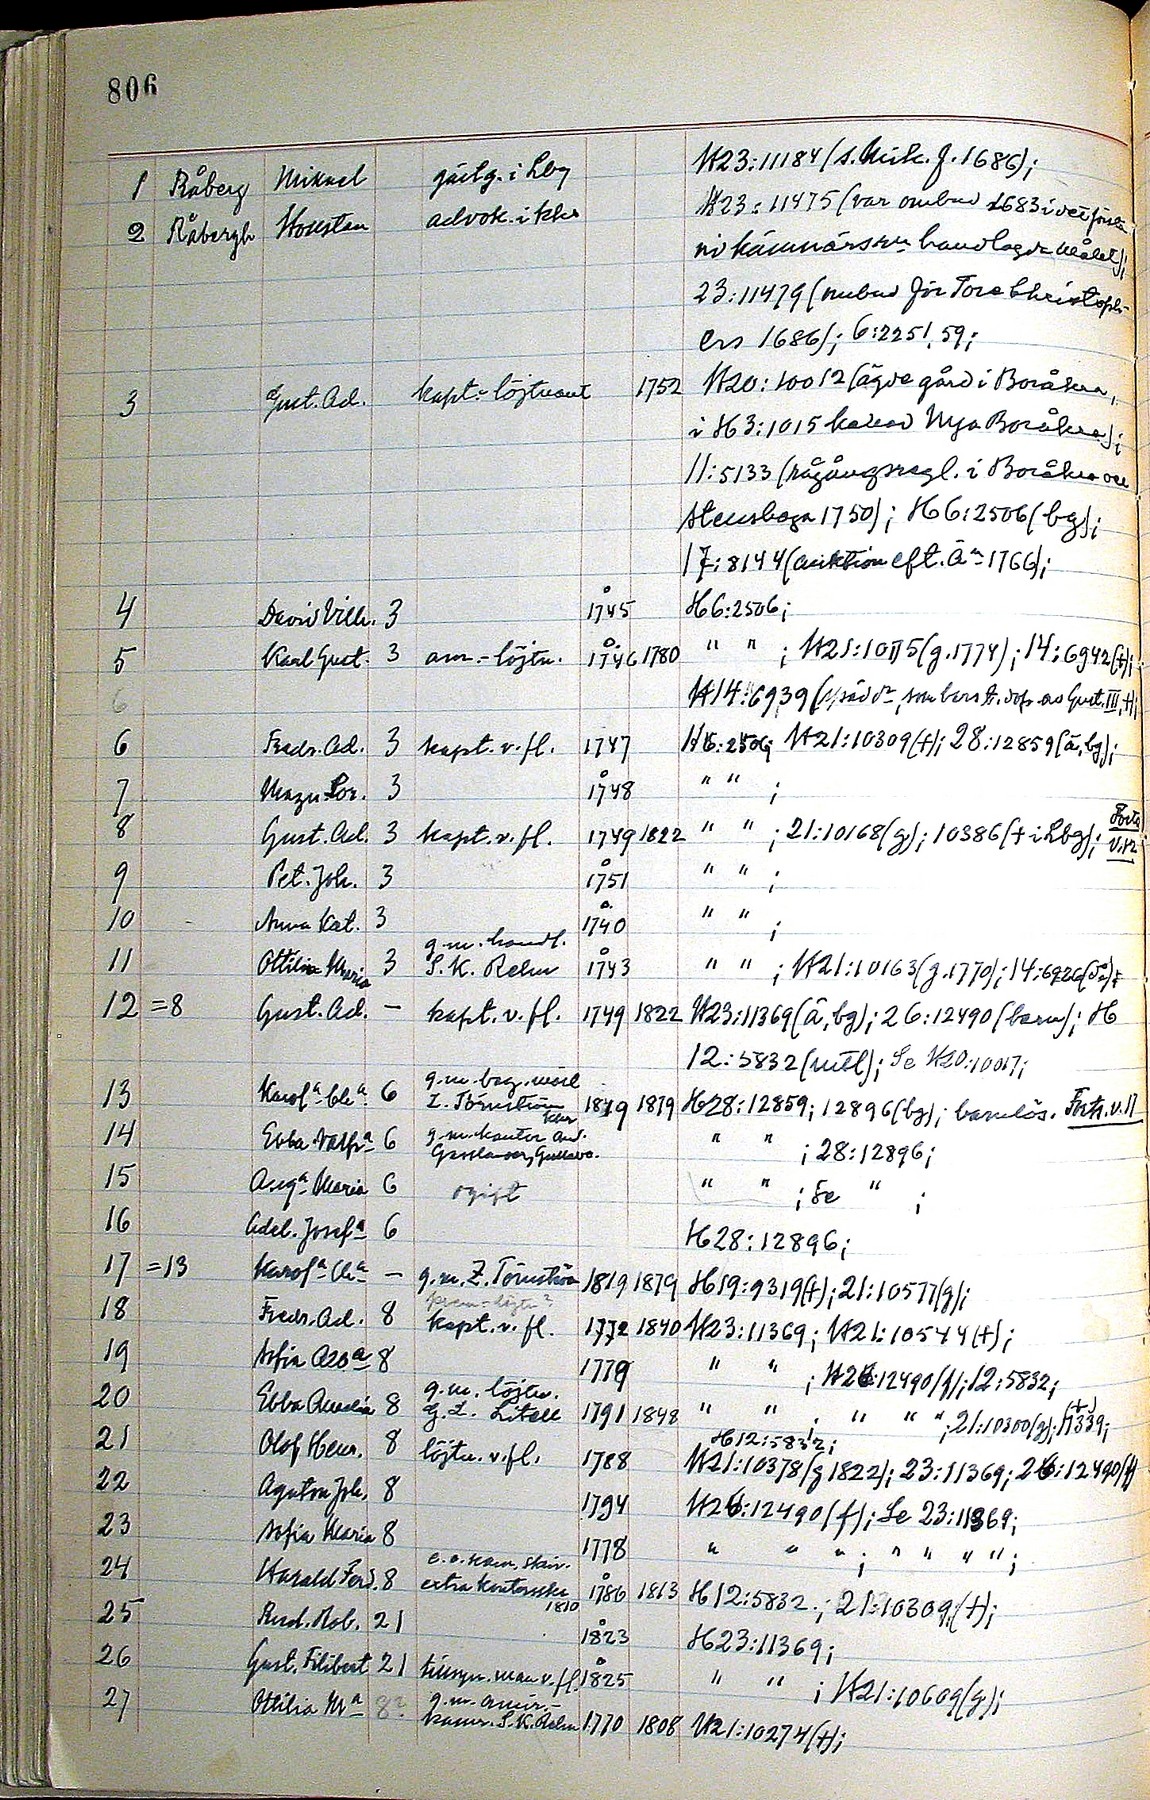 806
1 Råberg Mikael gästg. i Lbg H23:11184 (s. Mik. f. 1686);
2 Råbergh advok. i Kkr H23:11475 (var ombud 1683 i det första
vid kämnärsrn handlagda målet);
23:11479 (ombud för Tore Christoph-
ers 1686); 6:2251, 59;
3 Gust. Ad. kapt.-löjtnant 1752 H20:10012 (ägde gård i Boråkra,
i H3:1015 kallad Nya Boråkra);
11:5133 (rågångsregl. i Boråkra och
Stensboga 1750); H6:2506 (bg);
17:8144 (auktion eft. Ä 1766);
4 David Vilh. 3 1745 H6:2506;
5 Karl Gust. 3 am.-löjtn. 1746 1780 " " ; H21:10175 (g. 1774); 14:6942 (†);
6 H14:6939 ( som bars t. dop av Gust. III, †);
6 Fredr. Ad. 3 kapt. v. fl. 1747 H6:2506; H21:10309 (†); 28:12859 (ä, bg);
7 Magn. Lor. 3 1748 " " ;
8 Gust. Ad. 3 kapt. v. fl. 1749 1822 " " ; 21:10168 (g); 10386 († i Lbg); Forts v. 12
9 Pet. Joh. 3 1751 " " ;
10 Anna Kat. 3 1740 " " ;
11 Ottilia Maria 3 g.m. handl. S. K. Rehn 1743 " " ; H21:10163 (g. 1770); 14:6926
12 =8 Gust. Ad. – kapt. v. fl. 1749 1822 H23:11369 (ä, bg); 26:12490 (barn); H
12:5832 (mtl); Se H20:10017;
13 Karol.a Chr.a 6 g.m. Z. Törnström Kkr 1819 1879 H28:12859; 12896 (bg); barnlös. Forts. v. 17
14 Ebba 6 g.m. kantor And. " " ; 28:12896;
15 Aug.a Maria 6 ogift " " ; Se " ;
16 Adel. Josef.a 6 H28:12896;
17 =13 Karol.a Chr.a – g.m. Z. Törnström 1819 1879 H19:9319 (†); 21:10577 (g);
prem.-löjtn?
18 Fredr. Ad. 8 kapt. v. fl. 1772 1840 H23:11369; H21:10544 (†);
19 Sofia 8 1779 " " ; H26:12490 (f); 12:5832;
20 Ebba Amalia 8 g.m. löjtn. G. L. Litell 1791 1848 " " ; " " "; 21:10300 (g); 11339 (†);
H12:5832;
21 Olof Henr. 8 löjtn. v. fl. 1788 H21:10378 (g 1822); 23:11369; 26:12490 (f)
22 Agaton Joh. 8 1794 H26:12490 (f); Se 23:11369;
23 Sofia Maria 8 1778 " " " ; " " " " ;
24 Harald Ferd. 8 e.o. kam. skriv. extra kontorsskr 1810 1786 1813 H12:5832; 21:10309 (†);
25 Rud. Rob. 21 1823 H23:11369;
26 Gust. Filibert 21 tillsyn. man v. fl. 1825 " " ; H21:10609 (g);
27 Ottilia M.a 8? g.m. kamr. S. K. Rehn 1770 1808 H21:10274 (†);